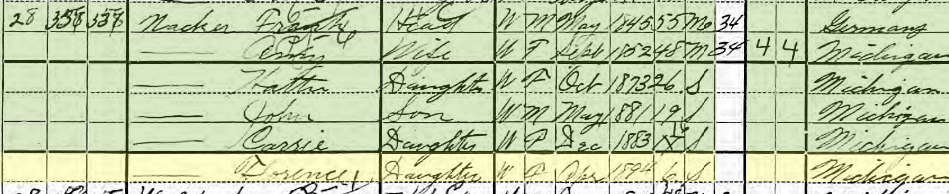 28 338 338 Nacker Frank Head W M May 1845 55 M 34 Germany
— Wife W F Sept 1852 48 M 34 4 4 Michigan
— Hattie Daughter W F Oct 1873 26 S Michigan
— John Son W M May 1881 19 S Michigan
— Carrie Daughter W F Dec 1883 16 S Michigan
— Florence Daughter W F Apr 1894 6 S Michigan